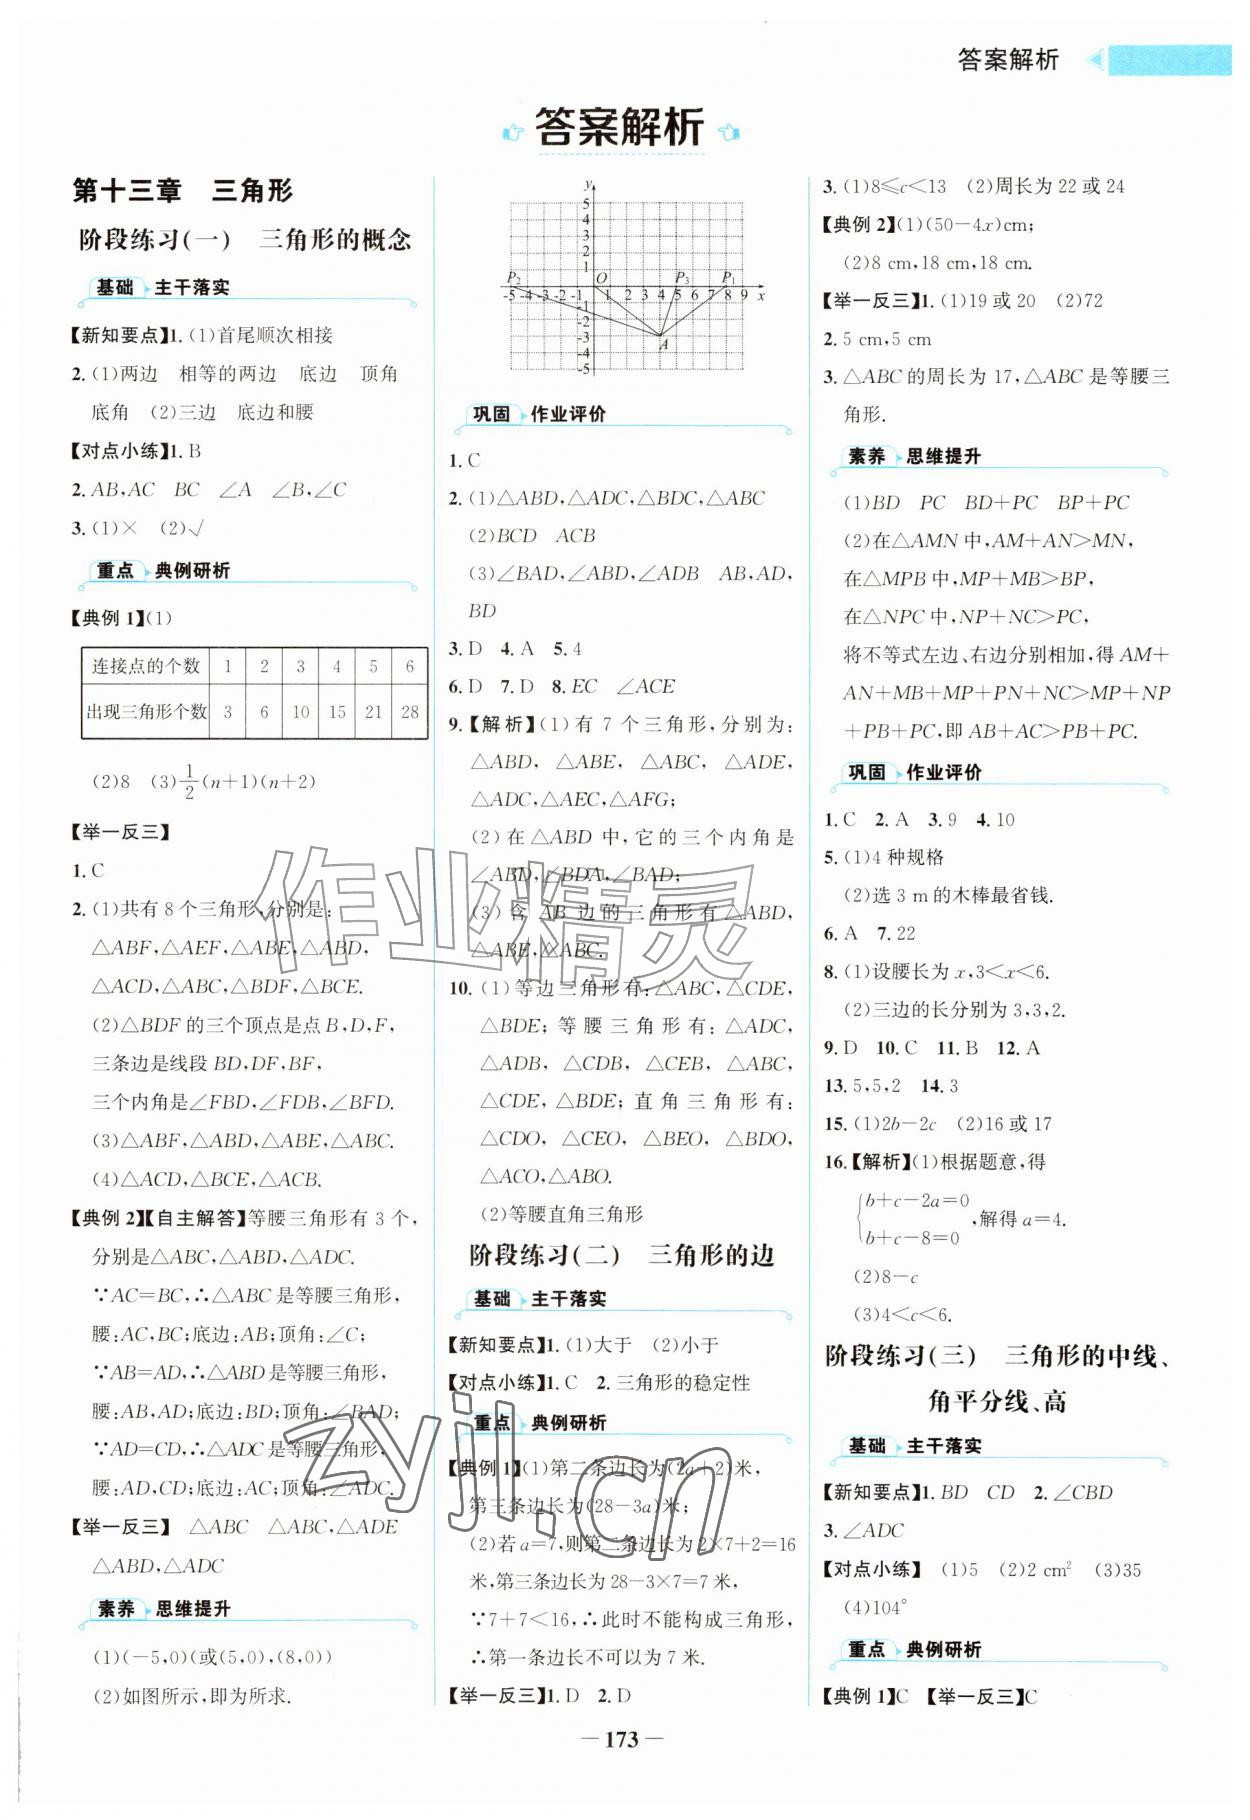 答案解析
答案解析
第十三章　三角形
阶段练习(一)　三角形的概念
基础　主干落实
【新知要点】1. (1)首尾顺次相接
2. (1)两边　相等的两边　底边　顶角
底角　(2)三边　底边和腰
【对点小练】1. B
2. AB,AC　BC　∠A　∠B,∠C
3. (1)×　(2)√
重点　典例研析
【典例 1】(1)
连接点的个数 1 2 3 4 5 6
出现三角形个数 3 6 10 15 21 28
(2)8　(3)1/2(n+1)(n+2)
【举一反三】
1. C
2. (1)共有 8 个三角形,分别是:
△ABF,△AEF,△ABE,△ABD,
△ACD,△ABC,△BDF,△BCE.
(2)△BDF 的三个顶点是点 B,D,F,
三条边是线段 BD,DF,BF,
三个内角是∠FBD,∠FDB,∠BFD.
(3)△ABF,△ABD,△ABE,△ABC.
(4)△ACD,△BCE,△ACB.
【典例 2】【自主解答】等腰三角形有 3 个,
分别是△ABC,△ABD,△ADC.
∵AC=BC,∴△ABC 是等腰三角形,
腰:AC,BC;底边:AB;顶角:∠C;
∵AB=AD,∴△ABD 是等腰三角形,
腰:AB,AD;底边:BD;顶角:∠BAD;
∵AD=CD,∴△ADC 是等腰三角形,
腰:AD,CD;底边:AC;顶角:∠ADC.
【举一反三】　△ABC　△ABC,△ADE
△ABD,△ADC
素养　思维提升
(1)(-5,0)(或(5,0),(8,0))
(2)如图所示,即为所求.
y
5
4
3
2
1
P2 O P3 P1
-5 -4 -3 -2 -1 1 2 3 4 5 6 7 8 9 x
-2
-3
A
-4
-5
巩固　作业评价
1. C
2. (1)△ABD,△ADC,△BDC,△ABC
(2)BCD　ACB
(3)∠BAD,∠ABD,∠ADB　AB,AD,
BD
3. D　4. A　5. 4
6. D　7. D　8. EC　∠ACE
9.【解析】(1)有 7 个三角形,分别为:
△ABD, △ABE, △ABC, △ADE,
△ADC,△AEC,△AFG;
(2)在△ABD 中,它的三个内角是
∠ABD,∠BDA,∠BAD;
(3)含 AB 边的三角形有△ABD,
△ABE,△ABC.
10. (1)等边三角形有:△ABC,△CDE,
△BDE;等腰三角形有:△ADC,
△ADB, △CDB, △CEB, △ABC,
△CDE,△BDE;直角三角形有:
△CDO, △CEO, △BEO, △BDO,
△ACO,△ABO.
(2)等腰直角三角形
阶段练习(二)　三角形的边
基础　主干落实
【新知要点】1. (1)大于　(2)小于
【对点小练】1. C　2. 三角形的稳定性
重点　典例研析
【典例 1】(1)第二条边长为(2a+2)米,
第三条边长为(28-3a)米;
(2)若 a=7,则第二条边长为 2×7+2=16
米,第三条边长为 28-3×7=7 米,
∵7+7<16,∴此时不能构成三角形,
∴第一条边长不可以为 7 米.
【举一反三】1. D　2. D
3. (1)8≤c<13　(2)周长为 22 或 24
【典例 2】(1)(50-4x)cm;
(2)8 cm,18 cm,18 cm.
【举一反三】1. (1)19 或 20　(2)72
2. 5 cm,5 cm
3. △ABC 的周长为 17,△ABC 是等腰三
角形.
素养　思维提升
(1)BD　PC　BD+PC　BP+PC
(2)在△AMN 中,AM+AN>MN,
在△MPB 中,MP+MB>BP,
在△NPC 中,NP+NC>PC,
将不等式左边、右边分别相加,得 AM+
AN+MB+MP+PN+NC>MP+NP
+PB+PC,即 AB+AC>PB+PC.
巩固　作业评价
1. C　2. A　3. 9　4. 10
5. (1)4 种规格
(2)选 3 m 的木棒最省钱.
6. A　7. 22
8. (1)设腰长为 x,3<x<6.
(2)三边的长分别为 3,3,2.
9. D　10. C　11. B　12. A
13. 5,5,2　14. 3
15. (1)2b-2c　(2)16 或 17
16.【解析】(1)根据题意,得
{b+c-2a=0
b+c-8=0 ,解得 a=4.
(2)8-c
(3)4<c<6.
阶段练习(三)　三角形的中线、
角平分线、高
基础　主干落实
【新知要点】1. BD　CD　2. ∠CBD
3. ∠ADC
【对点小练】　(1)5　(2)2 cm²　(3)35
(4)104°
重点　典例研析
【典例 1】C　【举一反三】C
作业精灵
zyjl.cn
— 173 —